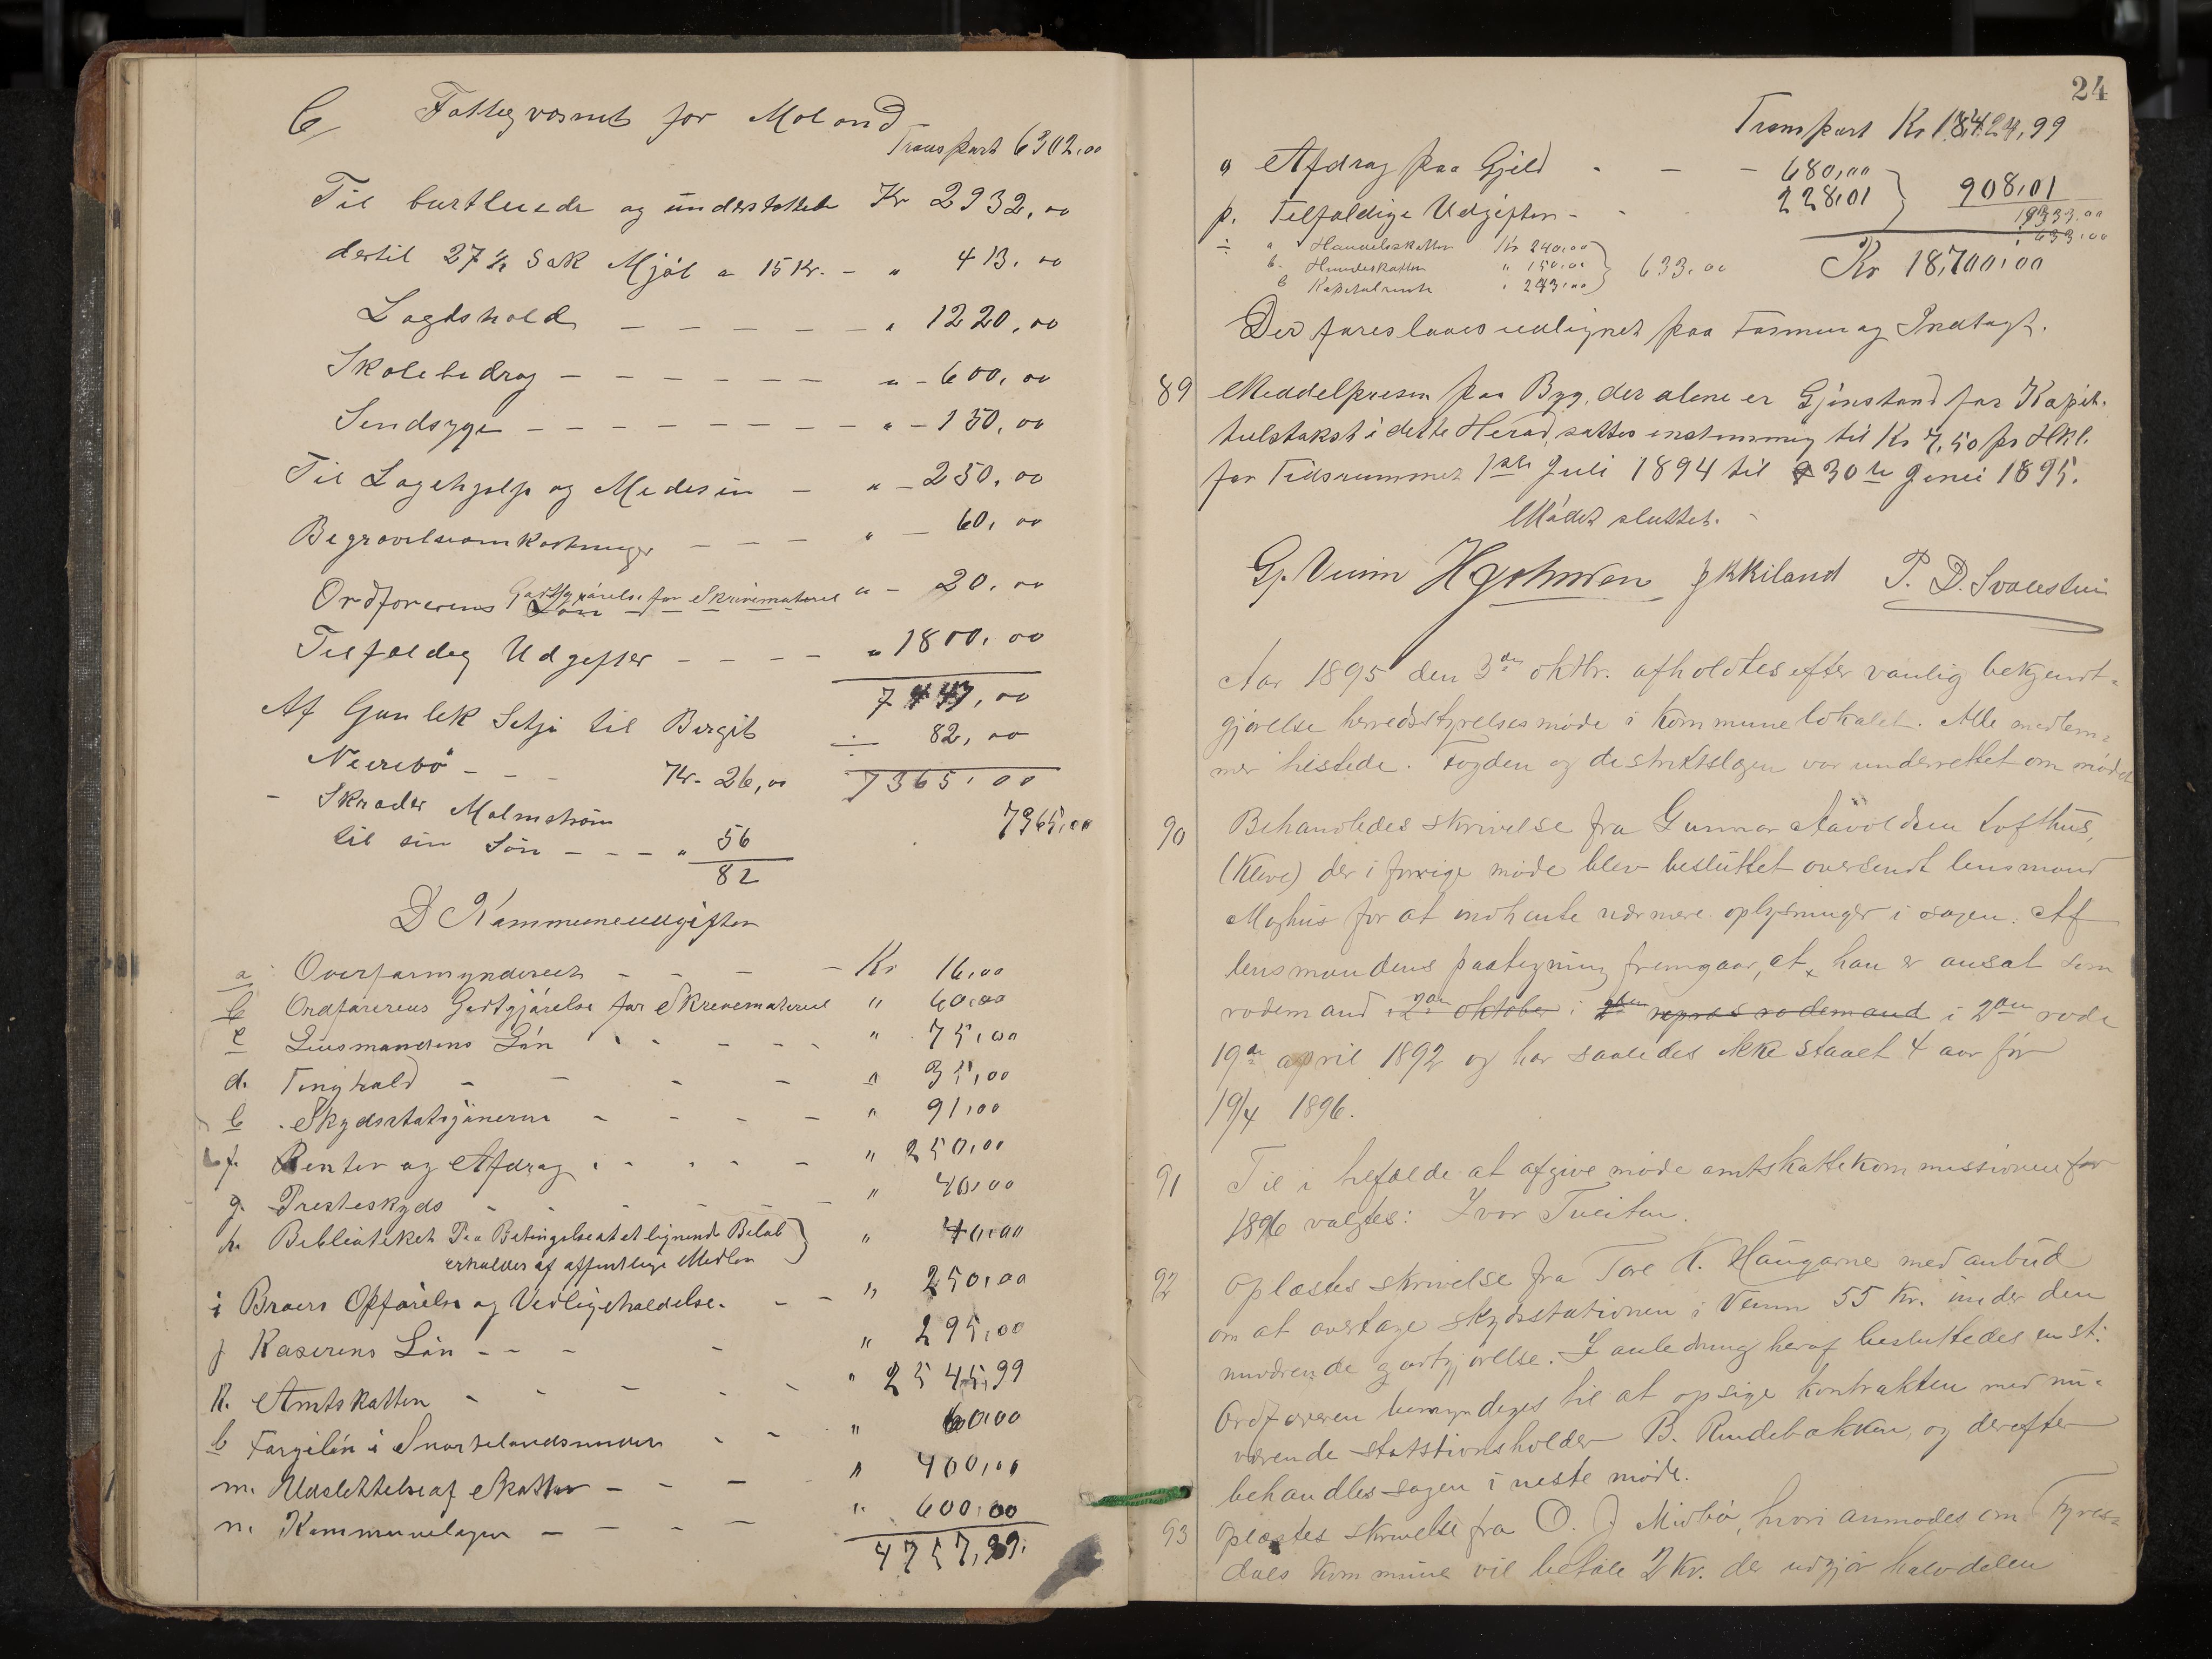 C Fattigvæsnet for Moland
Transport 6302,00
Til bortleiede og understøttede Kr 2932,00
dertil 27½ Sæk Mjøl a 15 Kr. - " 413,00
Lægdshold - - - - - " 1220,00
Skolebidrag - - - - - - " - 600,00
Sindsyge - - - - - - - - " - 150,00
Til Lægehjælp og Medesin - " - 250,00
Begravelsesomkostninger - - - " - 60,00
Ordførerens Godtgjørelse for Skrivemateriel " - 20,00
Tilfældig Udgifter - - - - " 1800,00
7447,00
Af Gunlek Setji til Birgit ÷ 82,00
Neirebö - - - Kr. 26,00 7365,00
- Skræder Malmstrøm 7365,00
til sin Søn - - - " 56
82
D Kommuneudgifter
a Overformynderiet - - - - Kr 16,00
b Ordførerens Godtgjørelse for Skrivemateriel " 60,00
c Lensmandens Løn - - - - " 75,00
d. Tinghold - - - - " 35,00
e. Skydsstatsjonerne - - - " 91,00
f. Renter og Afdrag - - - - " 250,00
g. Presteskyds - - - - " 40,00
h. Biblioteket Paa Betingelse at et lignende Beløb " 40,00
erholdes af offentlige Midler
i Broers Opførelse og Vedligeholdelse. - - " 250,00
j Kaserens Løn - - - - " 295,00
k. Amtskatten - - - - - " 2545,99
l Færgeløn i - - " 60,00
m. Udslettelse af Skatter - - - " 400,00
n. Kommunelægen - - - - " 600,00
4757,99.
24
Transport Kr 18,424,99
o Afdrag paa Gjeld - - - 680,00
p. Tilfældige Udgifter - - 228,01 908,01
19333,00
÷ a Handelsskatten Kr 240,00 ÷ 633,00
b. Hundeskatten " 150,00 633,00 Kr 18,700,00
c Kapitalrente " 243,00
Der foreslaaes udlignet paa Formue og Indtægt.
89 Middelprisen paa Byg, der alene er Gjenstand for Kapit-
tulstakst i dette Herad, sættes enstemmig til Kr 7,50 pr Hkl.
for Tidsrummet 1ste Juli 1894 til 30te Juni 1895.
Mødet sluttet.
Gj. Veum H Johnsen J K Kiland P. D. Svalestuen
Aar 1895 den 3die oktbr. afholdtes efter vanlig bekjendt-
gjørelse herredsstyrelsesmøde i kommunelokalet. Alle medlem-
mer tilstede. Fogden og distriktslægen var underrettet om mødet
90 Behandledes skrivelse fra Gunnar Aavoldsen Lofthus,
(Kleve) der i forrige møde blev besluttet oversendt lensmand
Moghus for at indhente nærmere oplysninger i sagen. Af
lensmandens paategning fremgaar, at han er ansat som
rodemand 2den oktober i repræs rodemand i 2den rode
19de april 1892 og har saaledes ikke staaet 4 aar før
19/4 1896.
91 Til i tilfælde at afgive møde amtskattekommissionen for
1896 valgtes: Ivar Tveiten.
92 Oplæstes skrivelse fra Tore K. Haugarne med anbud
om at overtage skydsstationen i Veum 55 kr. under den
nuværende godtgjørelse. I anledning heraf besluttedes enst:
Ordføreren bemyndiges til at opsige kontrakten med nu-
værende statstionsholder B. Rindebakken, og derefter
behandles sagen i næste møde.
93 Oplæstes skrivelse fra O. J Midbø, hvori anmodes om Fyres-
dals kommune vil betale 2 kr. der udgjør halvdelen